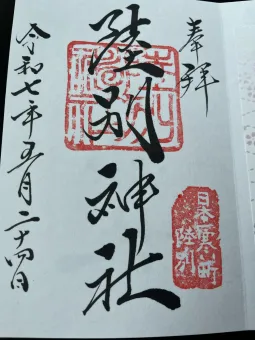 奉拝
陸別神社
日本一寒い町
陸別
令和七年五月二十四日